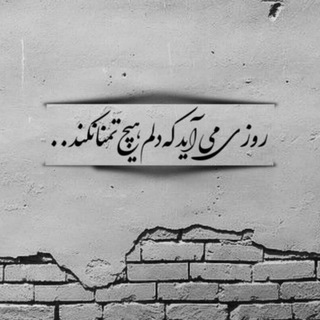 روزی می آید که دلم هیچ تمنا نکند..